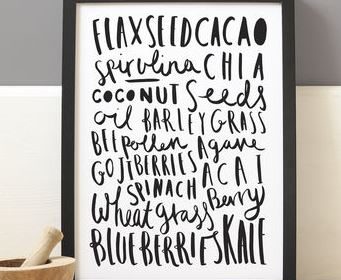 FLAXSEED CACAO
spirulina CHIA
COCONUT Seeds
oil BARLEY GRASS
BEE pollen Agave
GOJI BERRIES ACAI
SPINACH Berry
Wheat grass
BLUEBERRIES KALE